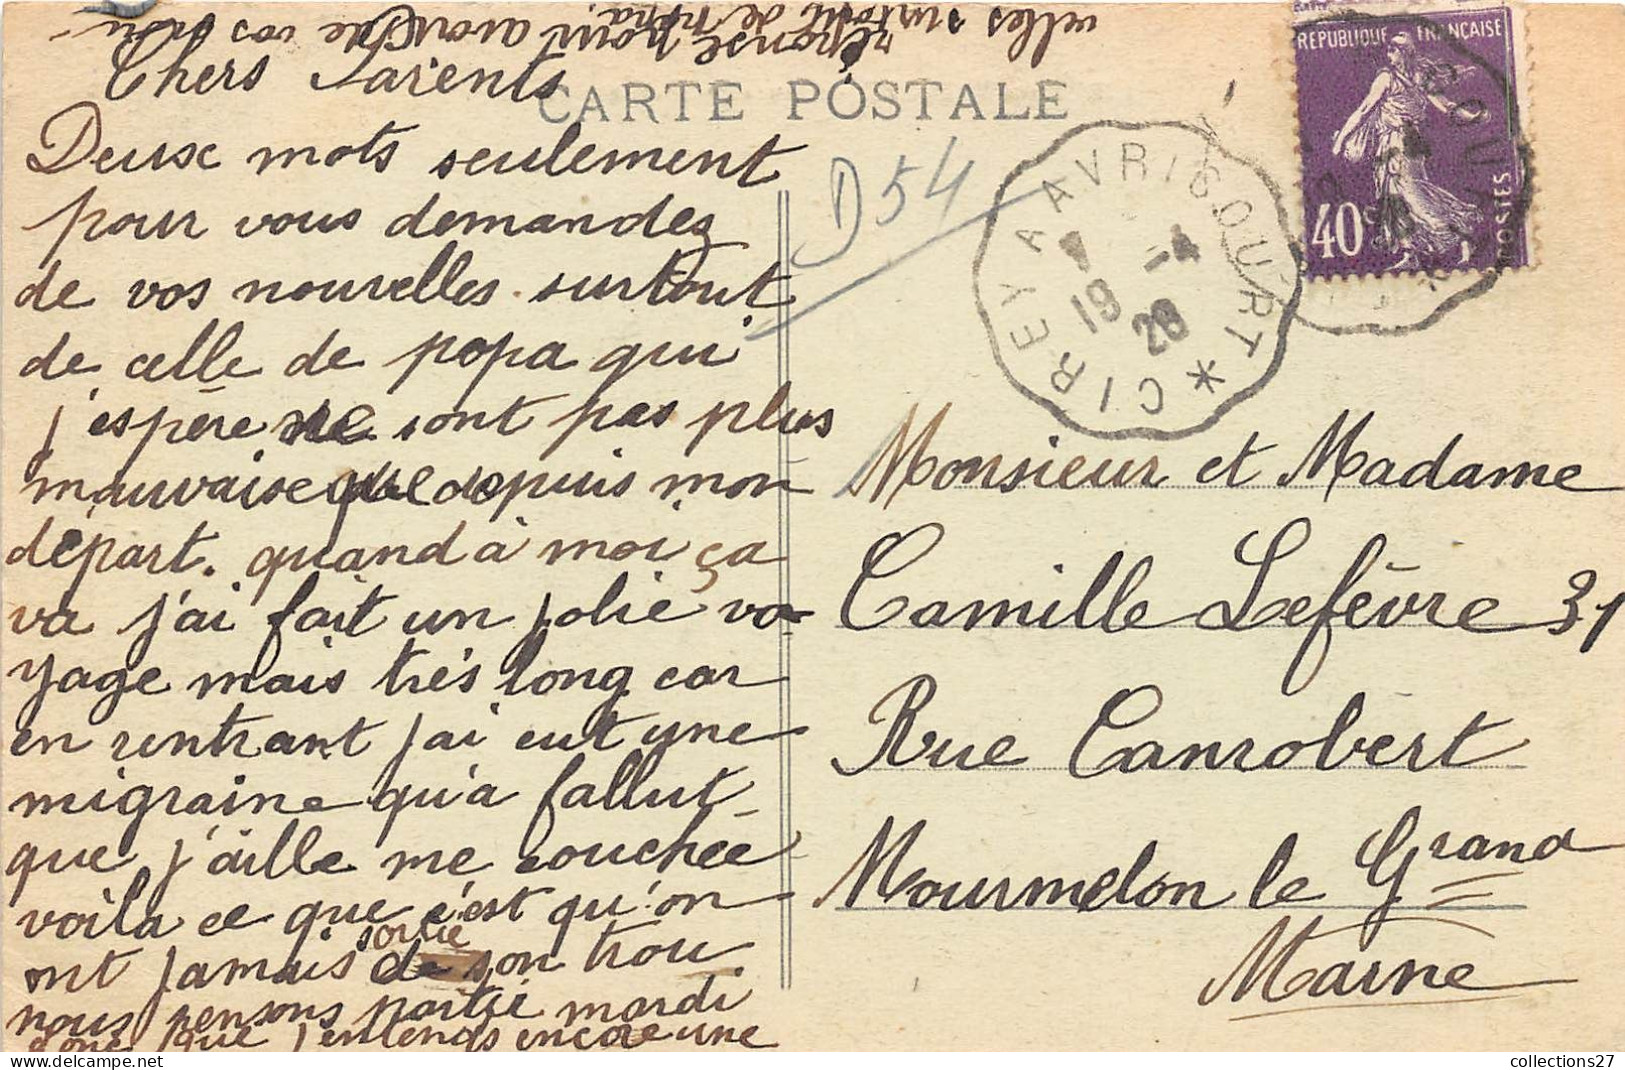 Chers Parents
Deusc mots seulement
pour vous demandez
de vos nouvelles surtout
de celle de popa qui
j'espère ne sont pas plus
mauvaise que depuis mon
départ. quand à moi ça
va j'ai fait un jolie vo-
yage mais très long car
en rentrant j'ai eut une
migraine qu'a fallut
que j'aille me couchée
voila ce que c'est qu'on
ont jamais sortie de son trou
nous pensons partie mardi
donc que j'entends encore une
réponse pour avoir de vos nou-
velles surtout de papa.
CARTE POSTALE
D54
CIREY A AVRICOURT *
19 -4
28
REPUBLIQUE FRANÇAISE
40c
POSTES
Monsieur et Madame
Camille Lefèvre 31
Rue Canrobert
Mourmelon le Grand
Marne
collections27